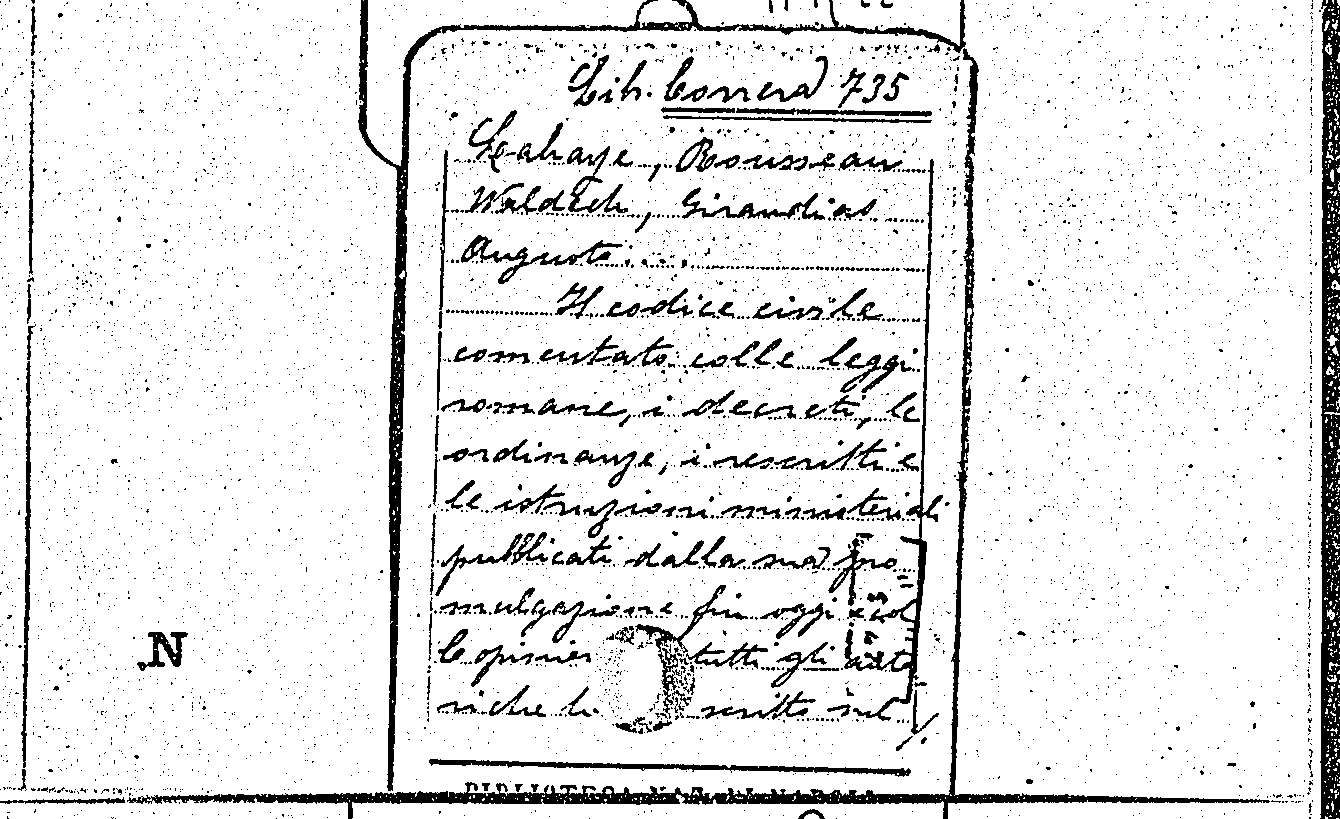 Lib. Correra 735
Lahaye, Rousseau
Waldeck, Giraudias
Auguste....
Il codice civile
comentato colle leggi
romane, i decreti, le
ordinanze, i rescritti e
le istruzioni ministeriali
pubblicati dalla sua pro
mulgazione fin oggi e col
le opinioni tutti gli auto
ri che scritto sul
./.
.N
BIBLIOTECA NAZ.